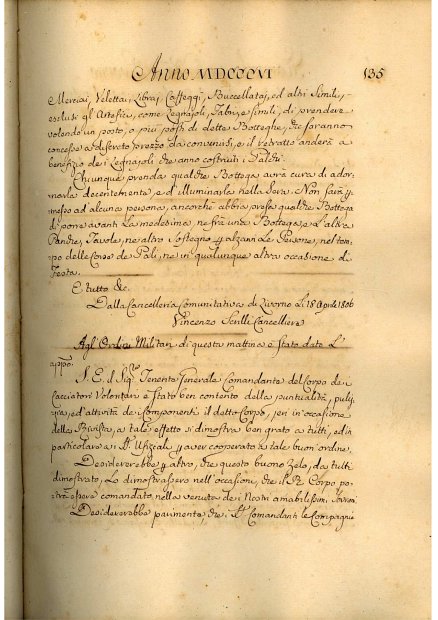 Anno MDCCCVI 135
Merciai, Velettai, Libraj, Caffeggi, Buccellataj, ed altri Simili,
esclusi gl'Artefici, come Legnajoli, Fabri, e simili, di prendere
volendo un posto, o più posti di dette Botteghe, che saranno
concesse a discreto prezzo da convenirsi, e il retratto anderà a
benefizio de i Legnajoli che anno costruiti i Palchi.
Chiunque prenda qualche Bottega avrà cura di ador-
narla decentemente, e d'illuminarla nella Sera. Non sarà p
messo ad alcuna persona, ancorchè abbia presa qualche Bottega
di porre avanti La medesima, ne frà una Bottega, e L'altra
Panche, Tavole, ne altro Sostegno p alzare Le Persone, nel tem-
po delle Corse de Palj, ne in qualunque altra occasione di
Festa.
E tutto &c.
Dalla Cancelleria Comunitativa di Livorno Li 18 Aprile 1806
Vincenzo Serilli Cancelliere
Agl'Ordini Militari di questa mattina è stato dato L'
appo:
S. E. il Sig.re Tenente Generale Comandante del Corpo de
Cacciatori Volontari è stato ben contento della puntualità, puli-
zia, ed attività de Componenti il detto Corpo, jeri in occasione
della Rivista, a tale effetto si dimostra ben grato a tutti, ed in
particolare a i SS.i Ufiziali p aver cooperato a tale buon'ordine.
Desidererebbe p altro, che questo buono Zelo, da tutti
dimostrato, Lo dimostrassero nell'occasioni, che il R. Corpo po-
trà essere comandato, nella venuta de i Nostri amabilissimi Sovrani
Desidererebbe parimente, che i SS.i Comandanti le Compagnie